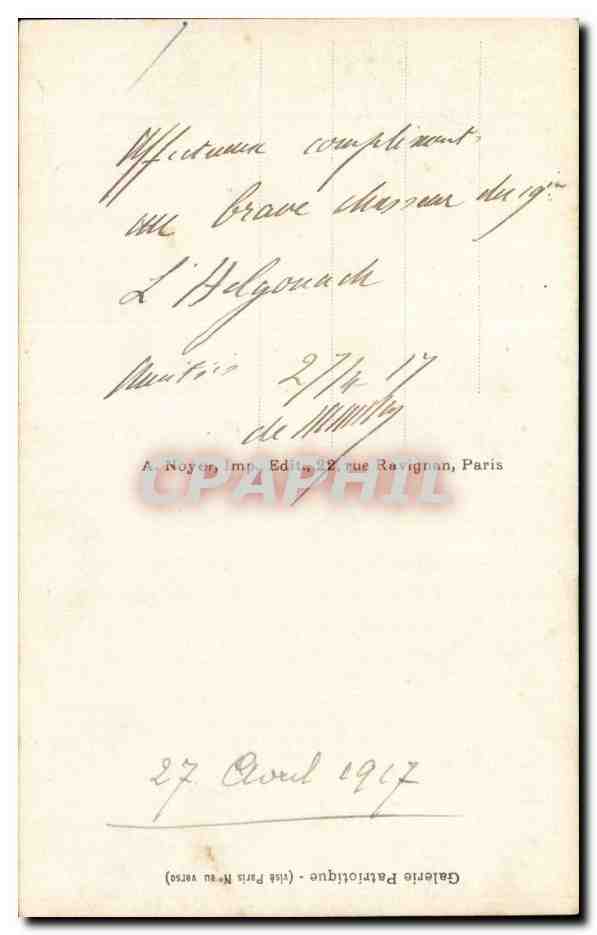 Affectueux compliments
au brave chasseur du 19ème
L'Helgouach
27/4 17
de
A. Noyer, Imp. Edit., 22, rue Ravignan, Paris
CPAPHIL
27 Avril 1917
Galerie Patriotique - (visé Paris Nos au verso)